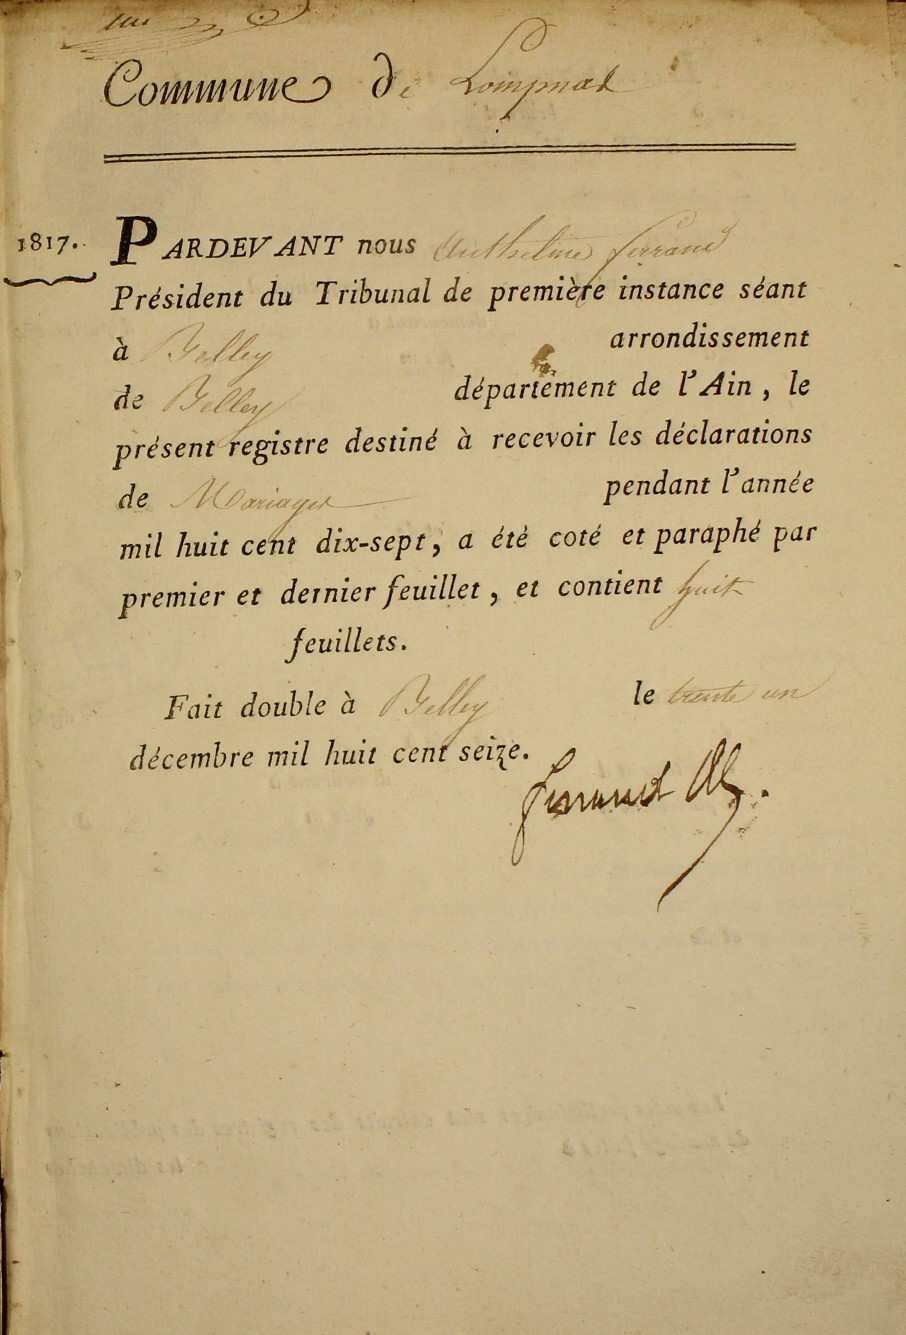 Commune de Lompnat
1817. PARDEVANT nous Anthelme ferrand
Président du Tribunal de première instance séant
à Belley arrondissement
de Belley département de l'Ain, le
présent registre destiné à recevoir les déclarations
de Mariages pendant l'année
mil huit cent dix-sept, a été coté et paraphé par
premier et dernier feuillet, et contient huit
feuillets.
Fait double à Belley le trente un
décembre mil huit cent seize.
ferrand